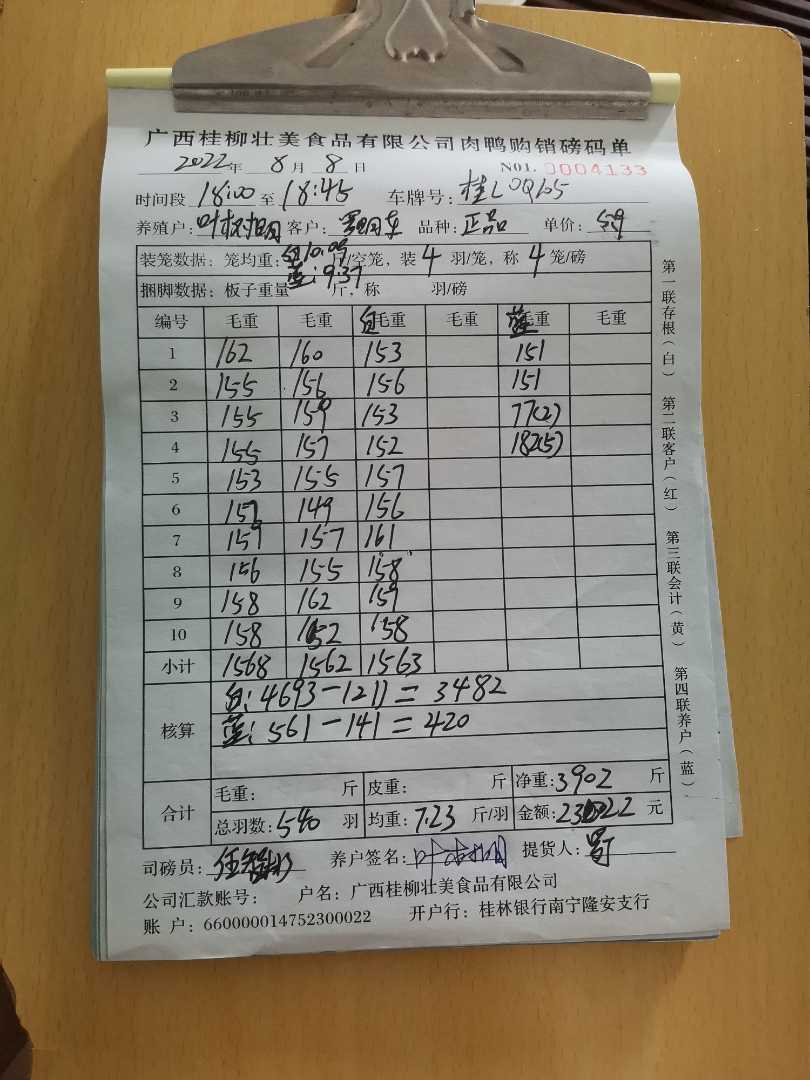 广西桂柳壮美食品有限公司肉鸭购销磅码单
2022年 8月 8日 NO1. 0004133
时间段 18:00 至 18:45 车牌号: 桂L0Q65
养殖户: 叶 客户: 品种: 正品 单价:
装笼数据: 笼均重: 白10.09 斤/空笼, 装 4 羽/笼, 称 4 笼/磅
蓝: 9.37
捆脚数据: 板子重量 斤, 称 羽/磅
编号 毛重 毛重 白毛重 毛重 蓝毛重 毛重
1 162 160 153 151
2 155 156 156 151
3 155 159 153 77(2)
4 155 157 152 182(5)
5 153 155 157
6 157 149 156
7 159 157 161
8 156 155 158
9 158 162 159
10 158 152 158
小计 1568 1562 1563
核算
白: 4693-1211=3482
蓝: 561-141=420
合计
毛重: 斤 皮重: 斤 净重: 3902 斤
总羽数: 540 羽 均重: 7.23 斤/羽 金额: 元
司磅员: 养户签名: 叶 提货人:
公司汇款账号: 户名: 广西桂柳壮美食品有限公司
账 户: 660000014752300022 开户行: 桂林银行南宁隆安支行
第一联存根(白) 第二联客户(红) 第三联会计(黄) 第四联养户(蓝)